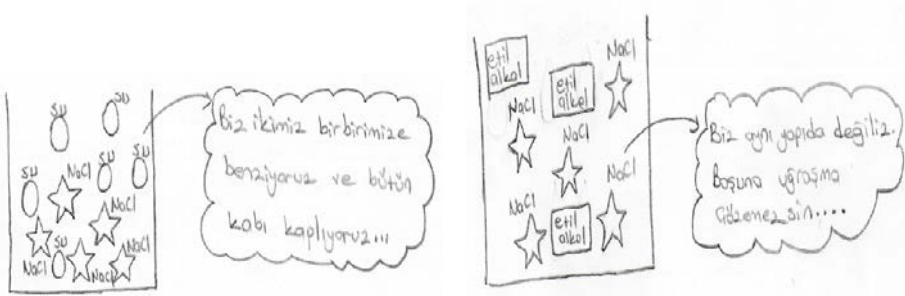 su
su
su
su
su
NaCl
NaCl
su
NaCl
NaCl
NaCl
Biz ikimiz birbirimize
benziyoruz ve bütün
kabı kaplıyoruz...
etil
alkol
NaCl
etil
alkol
NaCl
NaCl
NaCl
NaCl
etil
alkol
Biz aynı yapıda değiliz.
Boşuna uğraşma
Çözemezsin....